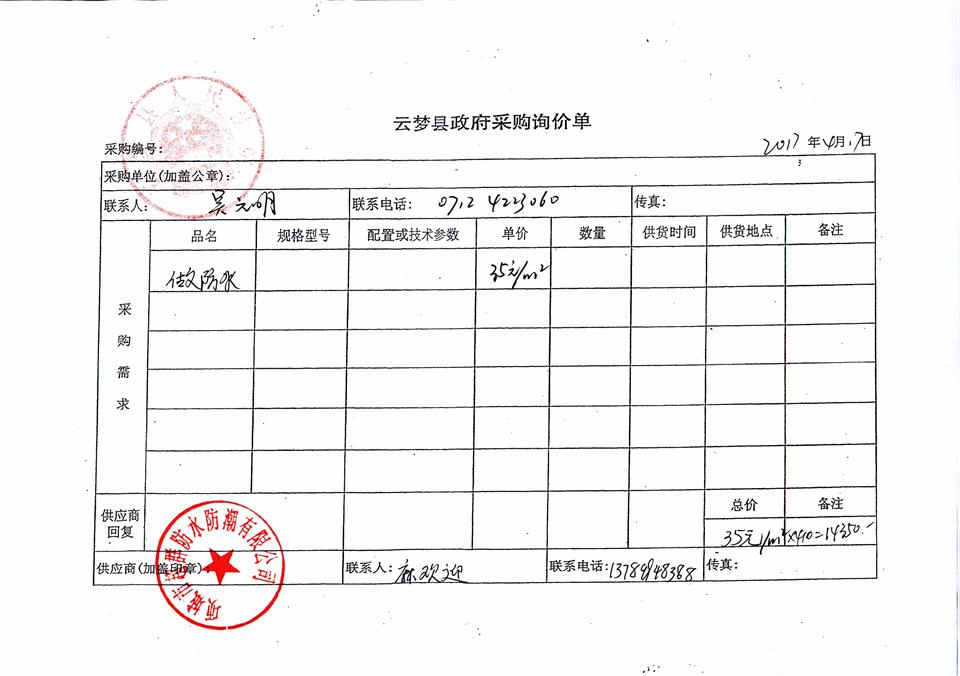 云梦县政府采购询价单
采购编号:
2017年4月17日
采购单位(加盖公章):
联系人: 吴元明 联系电话: 0712 4223060 传真:
品名 规格型号 配置或技术参数 单价 数量 供货时间 供货地点 备注
采购需求
做防水 35元/m²
供应商回复
总价 备注
35元/m²×410=14350.-
防水防潮有限公司
供应商(加盖印章):
联系人: 麻欢迎 联系电话: 传真: